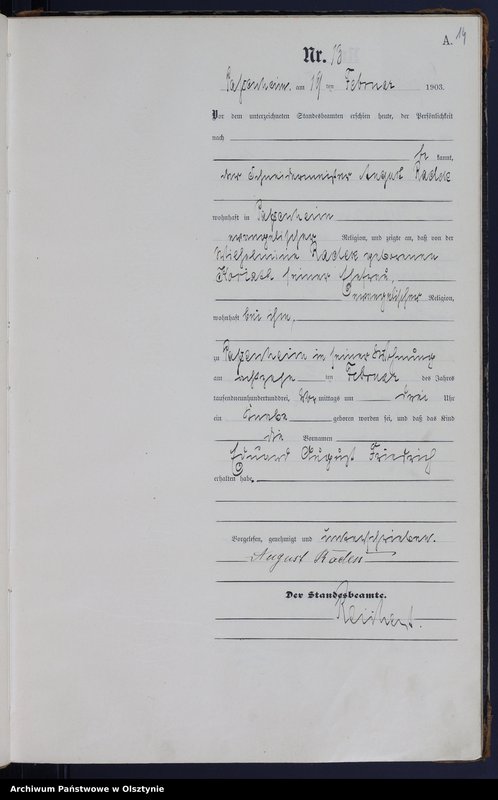 A. 14
Nr. 13
Passenheim am 19 ten Februar 1903.
Vor dem unterzeichneten Standesbeamten erschien heute, der Persönlichkeit
nach
be kannt,
der Schneidermeister August Radek
wohnhaft in Passenheim
evangelischer Religion, und zeigte an, daß von der
Wilhelmine Radek geborenen
Koriath seiner Ehefrau,
evangelischer Religion,
wohnhaft bei ihm,
zu Passenheim in seiner Wohnung
am achtzehn ten Februar des Jahres
tausendneunhundertunddrei, Vor mittags um drei Uhr
ein Knabe geboren worden sei, und daß das Kind
die Vornamen
Eduard August Friedrich
erhalten habe.
Vorgelesen, genehmigt und unterschrieben.
August Radek
Der Standesbeamte.
Archiwum Państwowe w Olsztynie